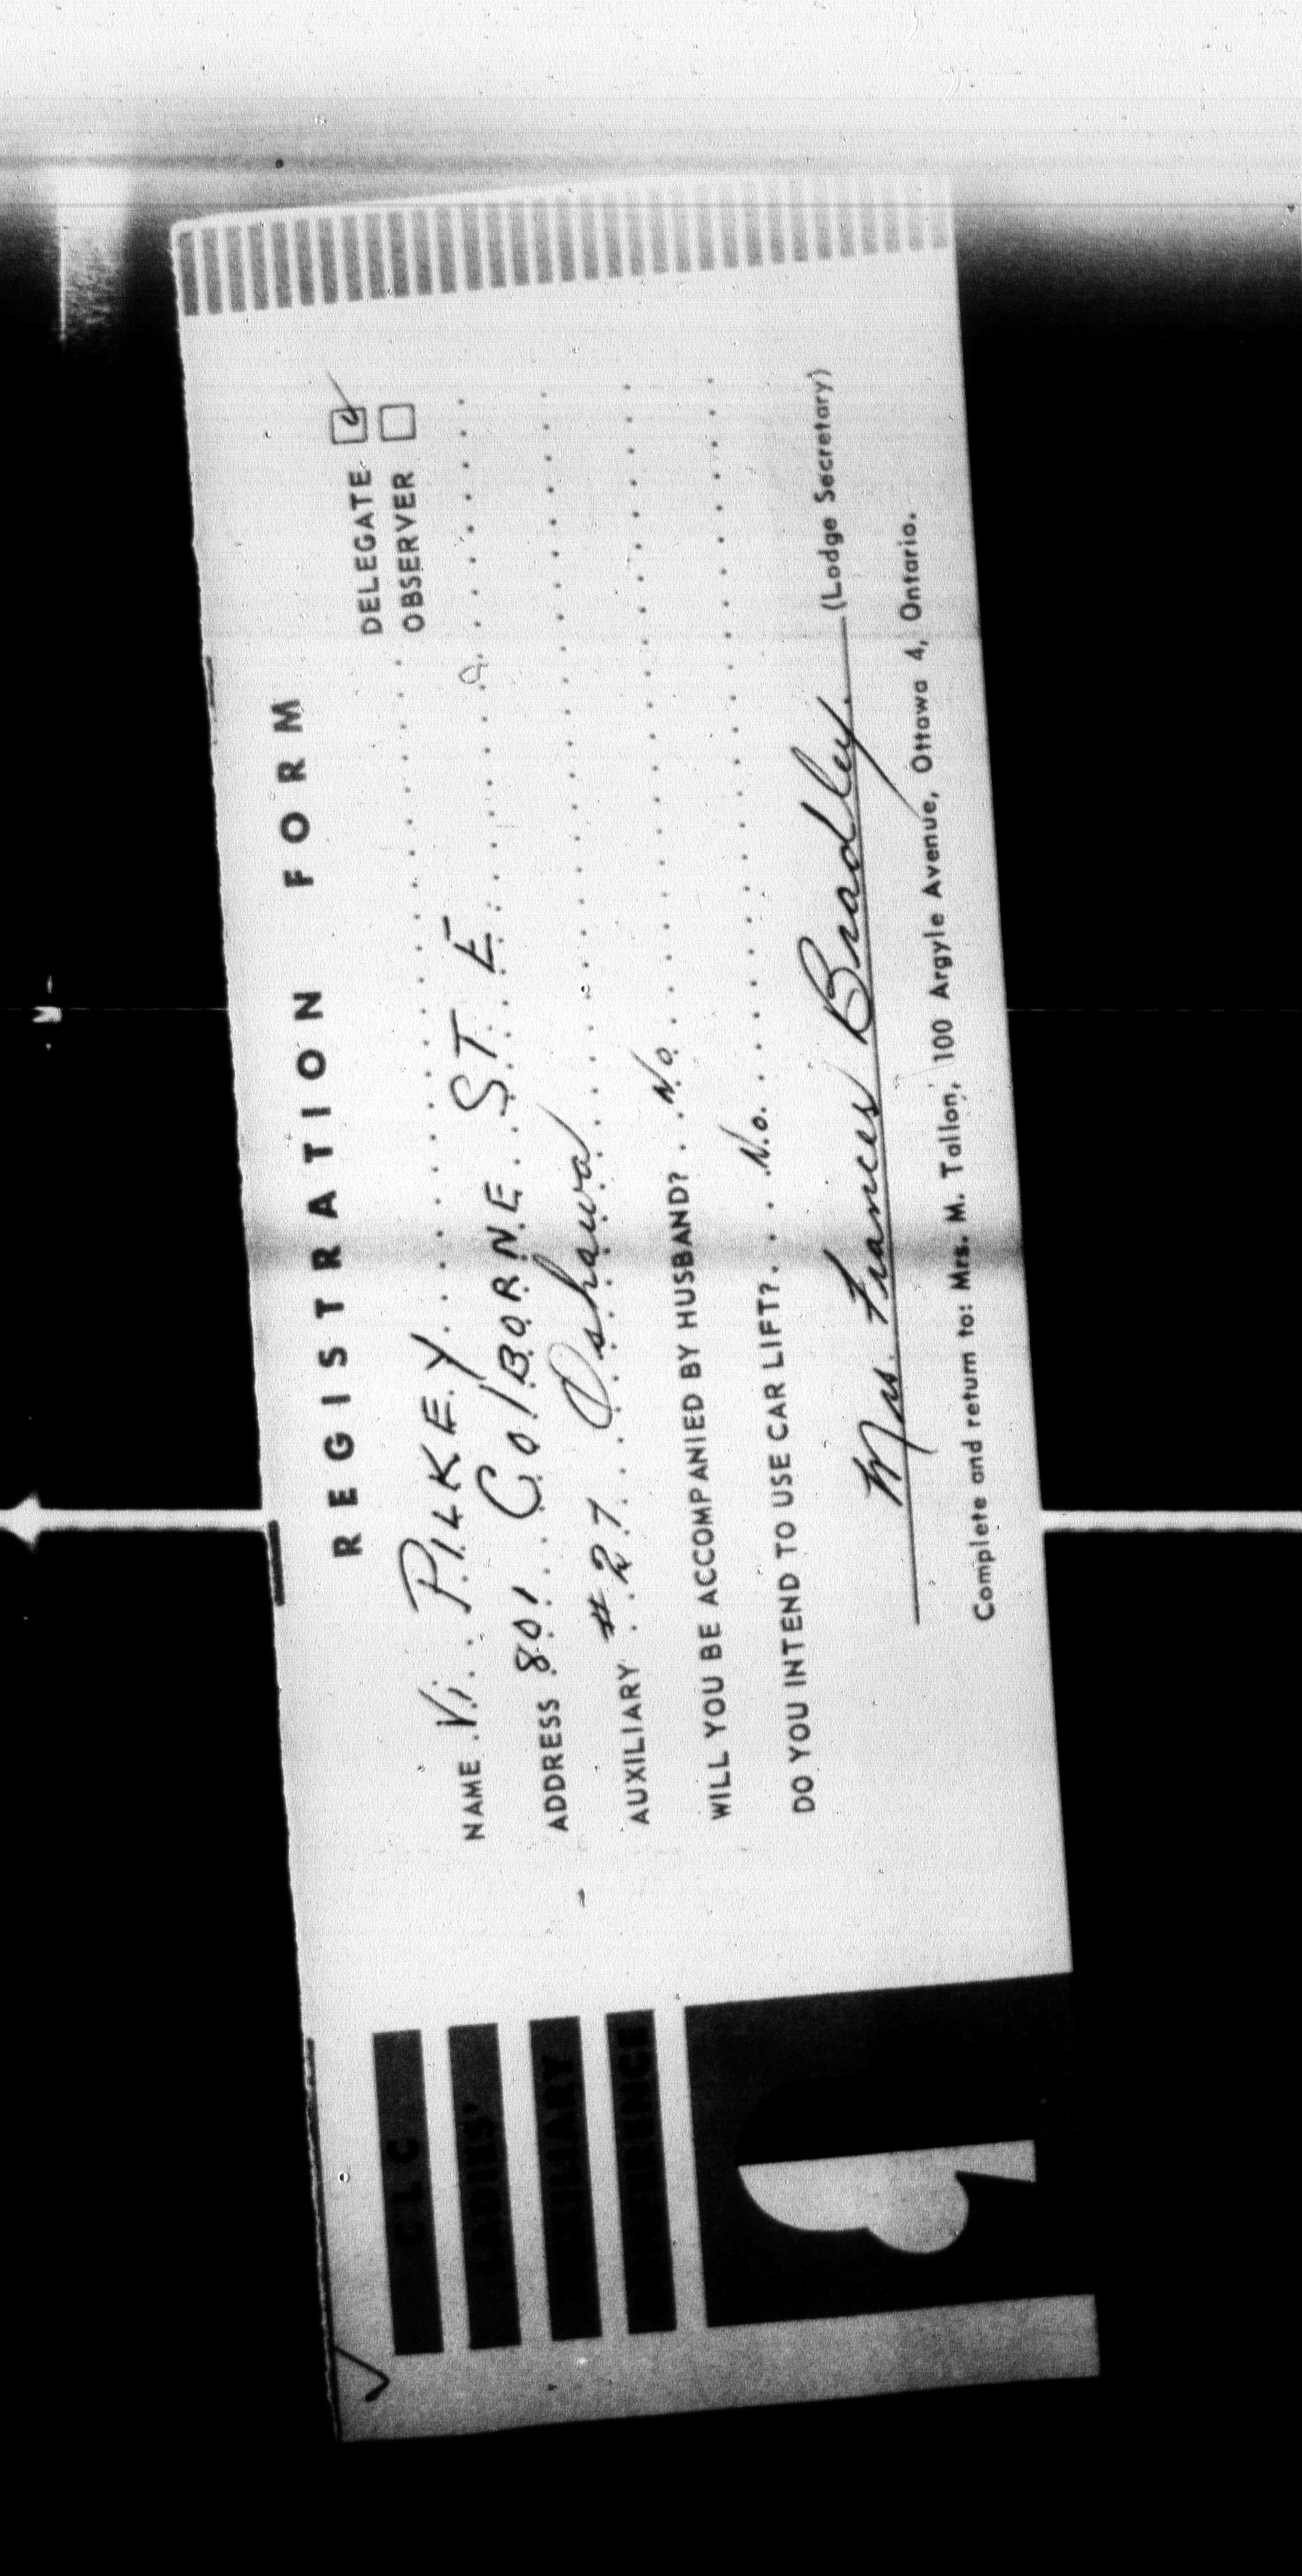 CLC
LADIES'
AUXILIARY
CONFERENCE
REGISTRATION FORM
DELEGATE
OBSERVER
NAME Vi PILKEY
ADDRESS 801 COlBORNE ST. E
AUXILIARY #27 Oshawa
WILL YOU BE ACCOMPANIED BY HUSBAND? No
DO YOU INTEND TO USE CAR LIFT? No.
Mrs. Frances Bradley. (Lodge Secretary)
Complete and return to: Mrs. M. Tallon, 100 Argyle Avenue, Ottawa 4, Ontario.